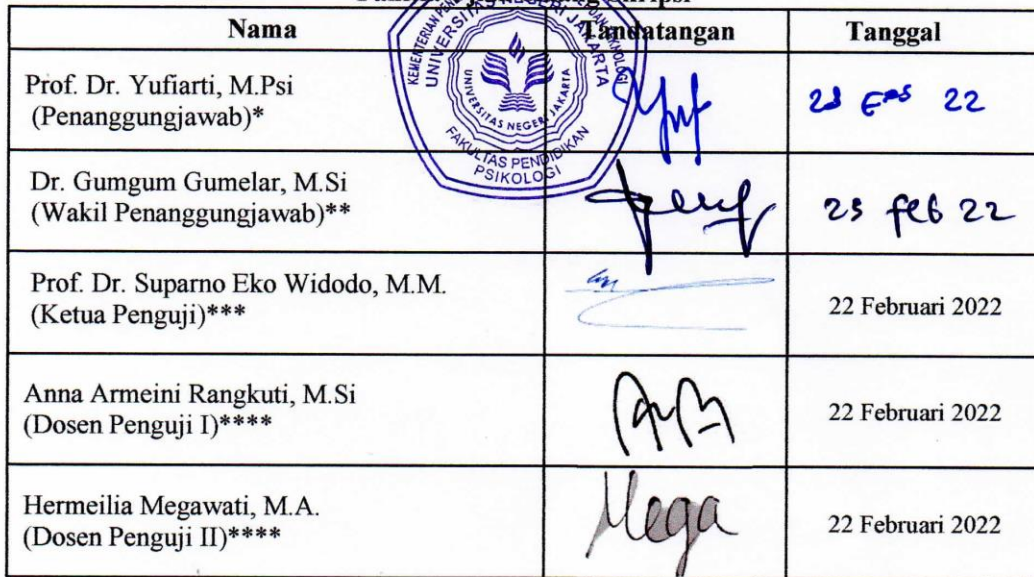 Nama Tandatangan Tanggal
Prof. Dr. Yufiarti, M.Psi
(Penanggungjawab)*
Dr. Gumgum Gumelar, M.Si
(Wakil Penanggungjawab)**
23 feb 22
Prof. Dr. Suparno Eko Widodo, M.M.
(Ketua Penguji)***
22 Februari 2022
Anna Armeini Rangkuti, M.Si
(Dosen Penguji I)****
22 Februari 2022
Hermeilia Megawati, M.A.
(Dosen Penguji II)****
Mega
22 Februari 2022
UNIVERSITAS NEGERI JAKARTA
UNIVERSITAS NEGERI JAKARTA
FAKULTAS PENDIDIKAN
PSIKOLOGI